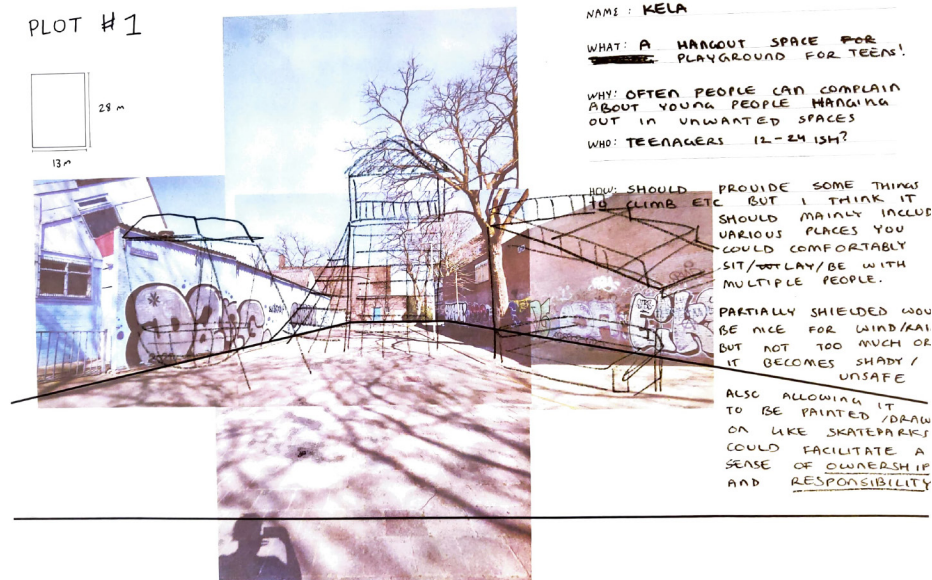 PLOT #1
28 m
13 m
NAME: KELA
WHAT: A HANGOUT SPACE FOR
PLAYGROUND FOR TEENS!
WHY: OFTEN PEOPLE CAN COMPLAIN
ABOUT YOUNG PEOPLE HANGING
OUT IN UNWANTED SPACES
WHO: TEENAGERS 12-24 ISH?
HOW: SHOULD PROVIDE SOME THINGS
TO CLIMB ETC BUT I THINK IT
SHOULD MAINLY INCLUD
VARIOUS PLACES YOU
COULD COMFORTABLY
SIT/LAY/BE WITH
MULTIPLE PEOPLE.
PARTIALLY SHIELDED WOU
BE NICE FOR WIND/RAI
BUT NOT TOO MUCH OR
IT BECOMES SHADY/
UNSAFE
ALSO ALLOWING IT
TO BE PAINTED/DRAW
ON LIKE SKATEPARKS
COULD FACILITATE A
SENSE OF OWNERSHIP
AND RESPONSIBILITY